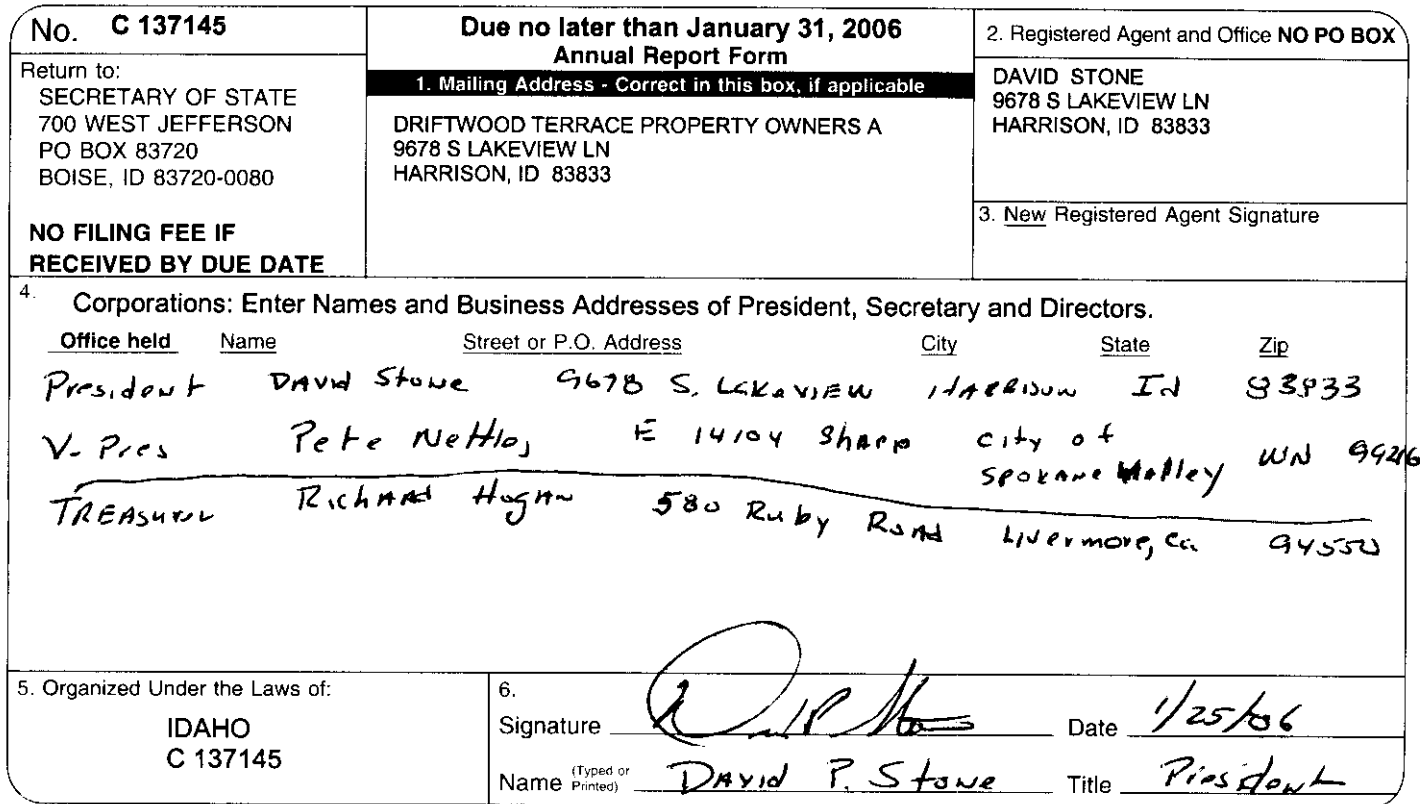 No. C 137145
Return to:
SECRETARY OF STATE
700 WEST JEFFERSON
PO BOX 83720
BOISE, ID 83720-0080
NO FILING FEE IF
RECEIVED BY DUE DATE
Due no later than January 31, 2006
Annual Report Form
1. Mailing Address - Correct in this box, if applicable
DRIFTWOOD TERRACE PROPERTY OWNERS A
9678 S LAKEVIEW LN
HARRISON, ID 83833
2. Registered Agent and Office NO PO BOX
DAVID STONE
9678 S LAKEVIEW LN
HARRISON, ID 83833
3. New Registered Agent Signature
4. Corporations: Enter Names and Business Addresses of President, Secretary and Directors.
Office held Name Street or P.O. Address City State Zip
President DAVID Stone 9678 S. LakeVIEW HARRISON Id 83833
V- Pres Pete Nettles E 14104 Sharp City of
Spokane Valley WN 99216
TREASURER RichARd HogAN 580 Ruby RoAd Livermore, Ca 94550
5. Organized Under the Laws of:
IDAHO
C 137145
6.
Signature David P. Stone Date 1/25/06
Name (Typed or Printed) DAVID P. Stone Title President